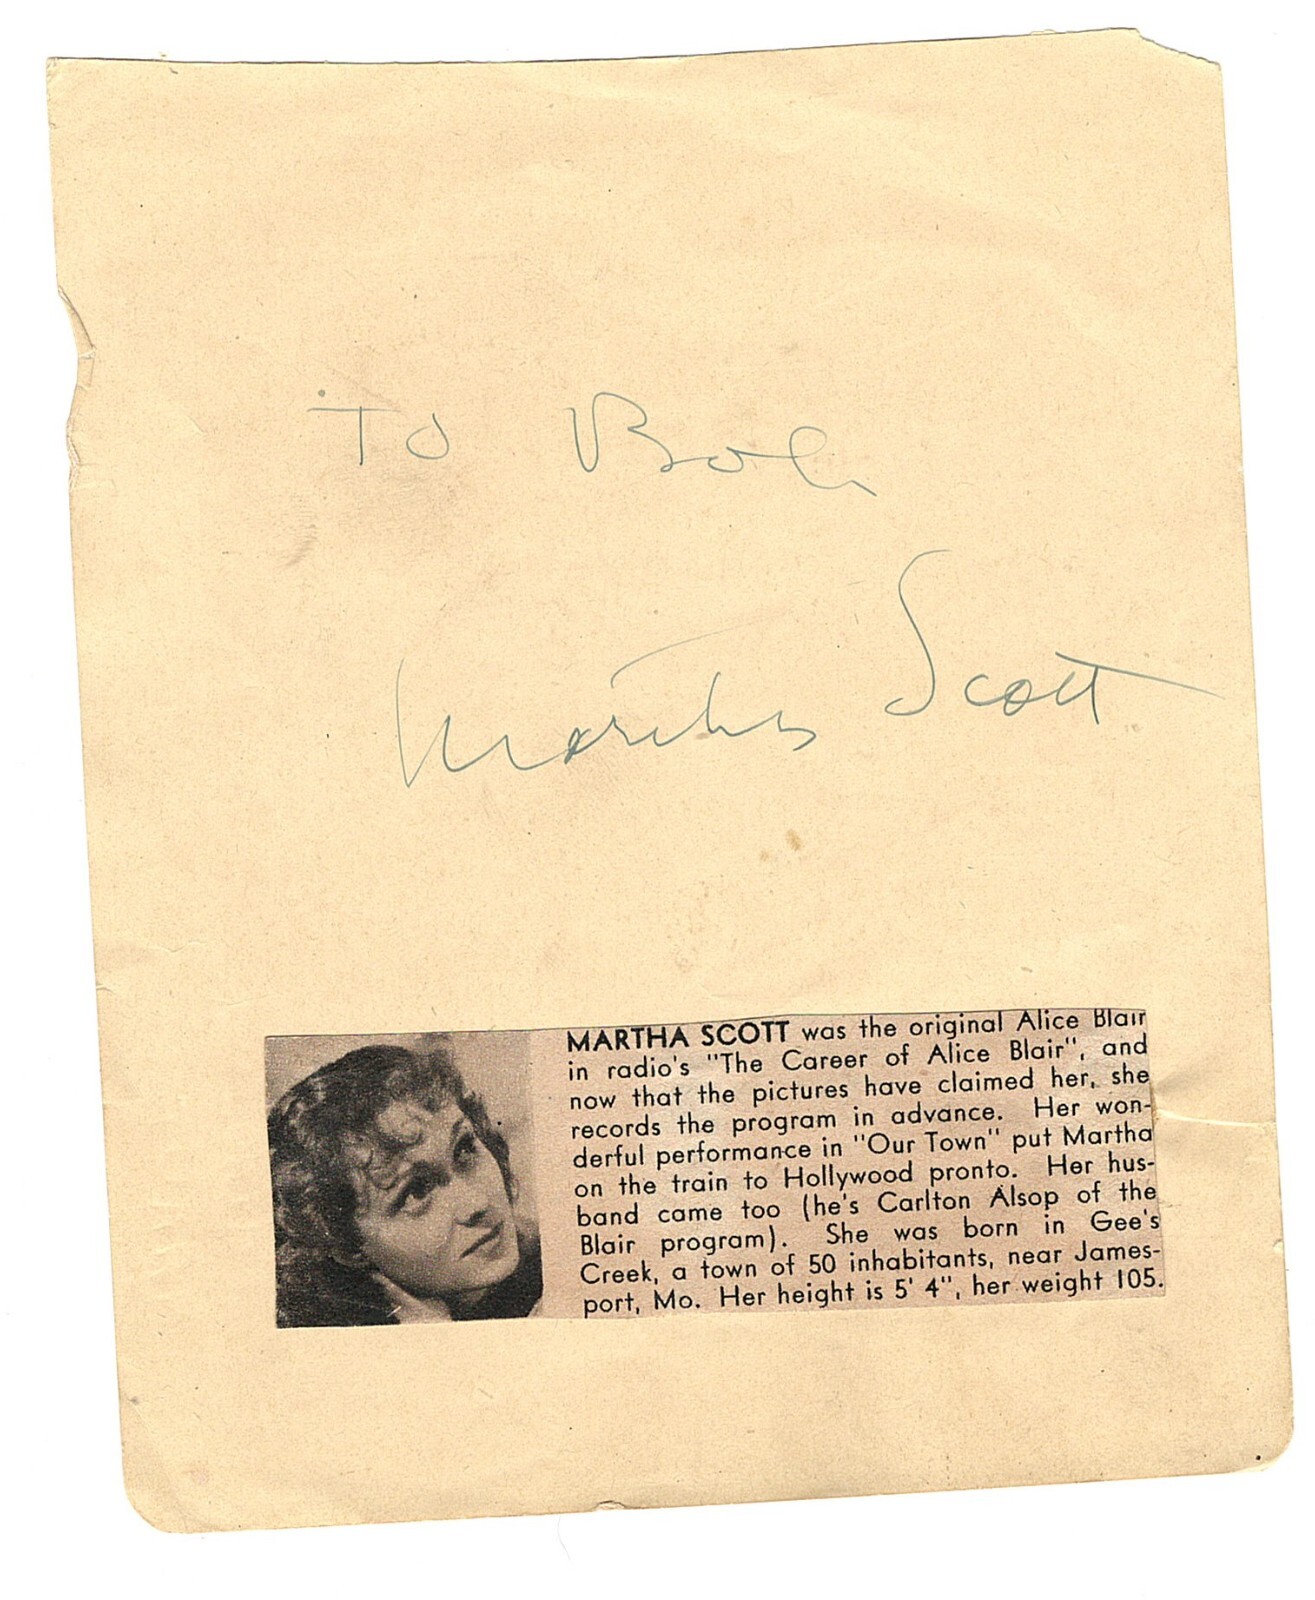 To Bob
Martha Scott
MARTHA SCOTT was the original Alice Blair
in radio's "The Career of Alice Blair", and
now that the pictures have claimed her, she
records the program in advance. Her won-
derful performance in "Our Town" put Martha
on the train to Hollywood pronto. Her hus-
band came too (he's Carlton Alsop of the
Blair program). She was born in Gee's
Creek, a town of 50 inhabitants, near James-
port, Mo. Her height is 5' 4", her weight 105.